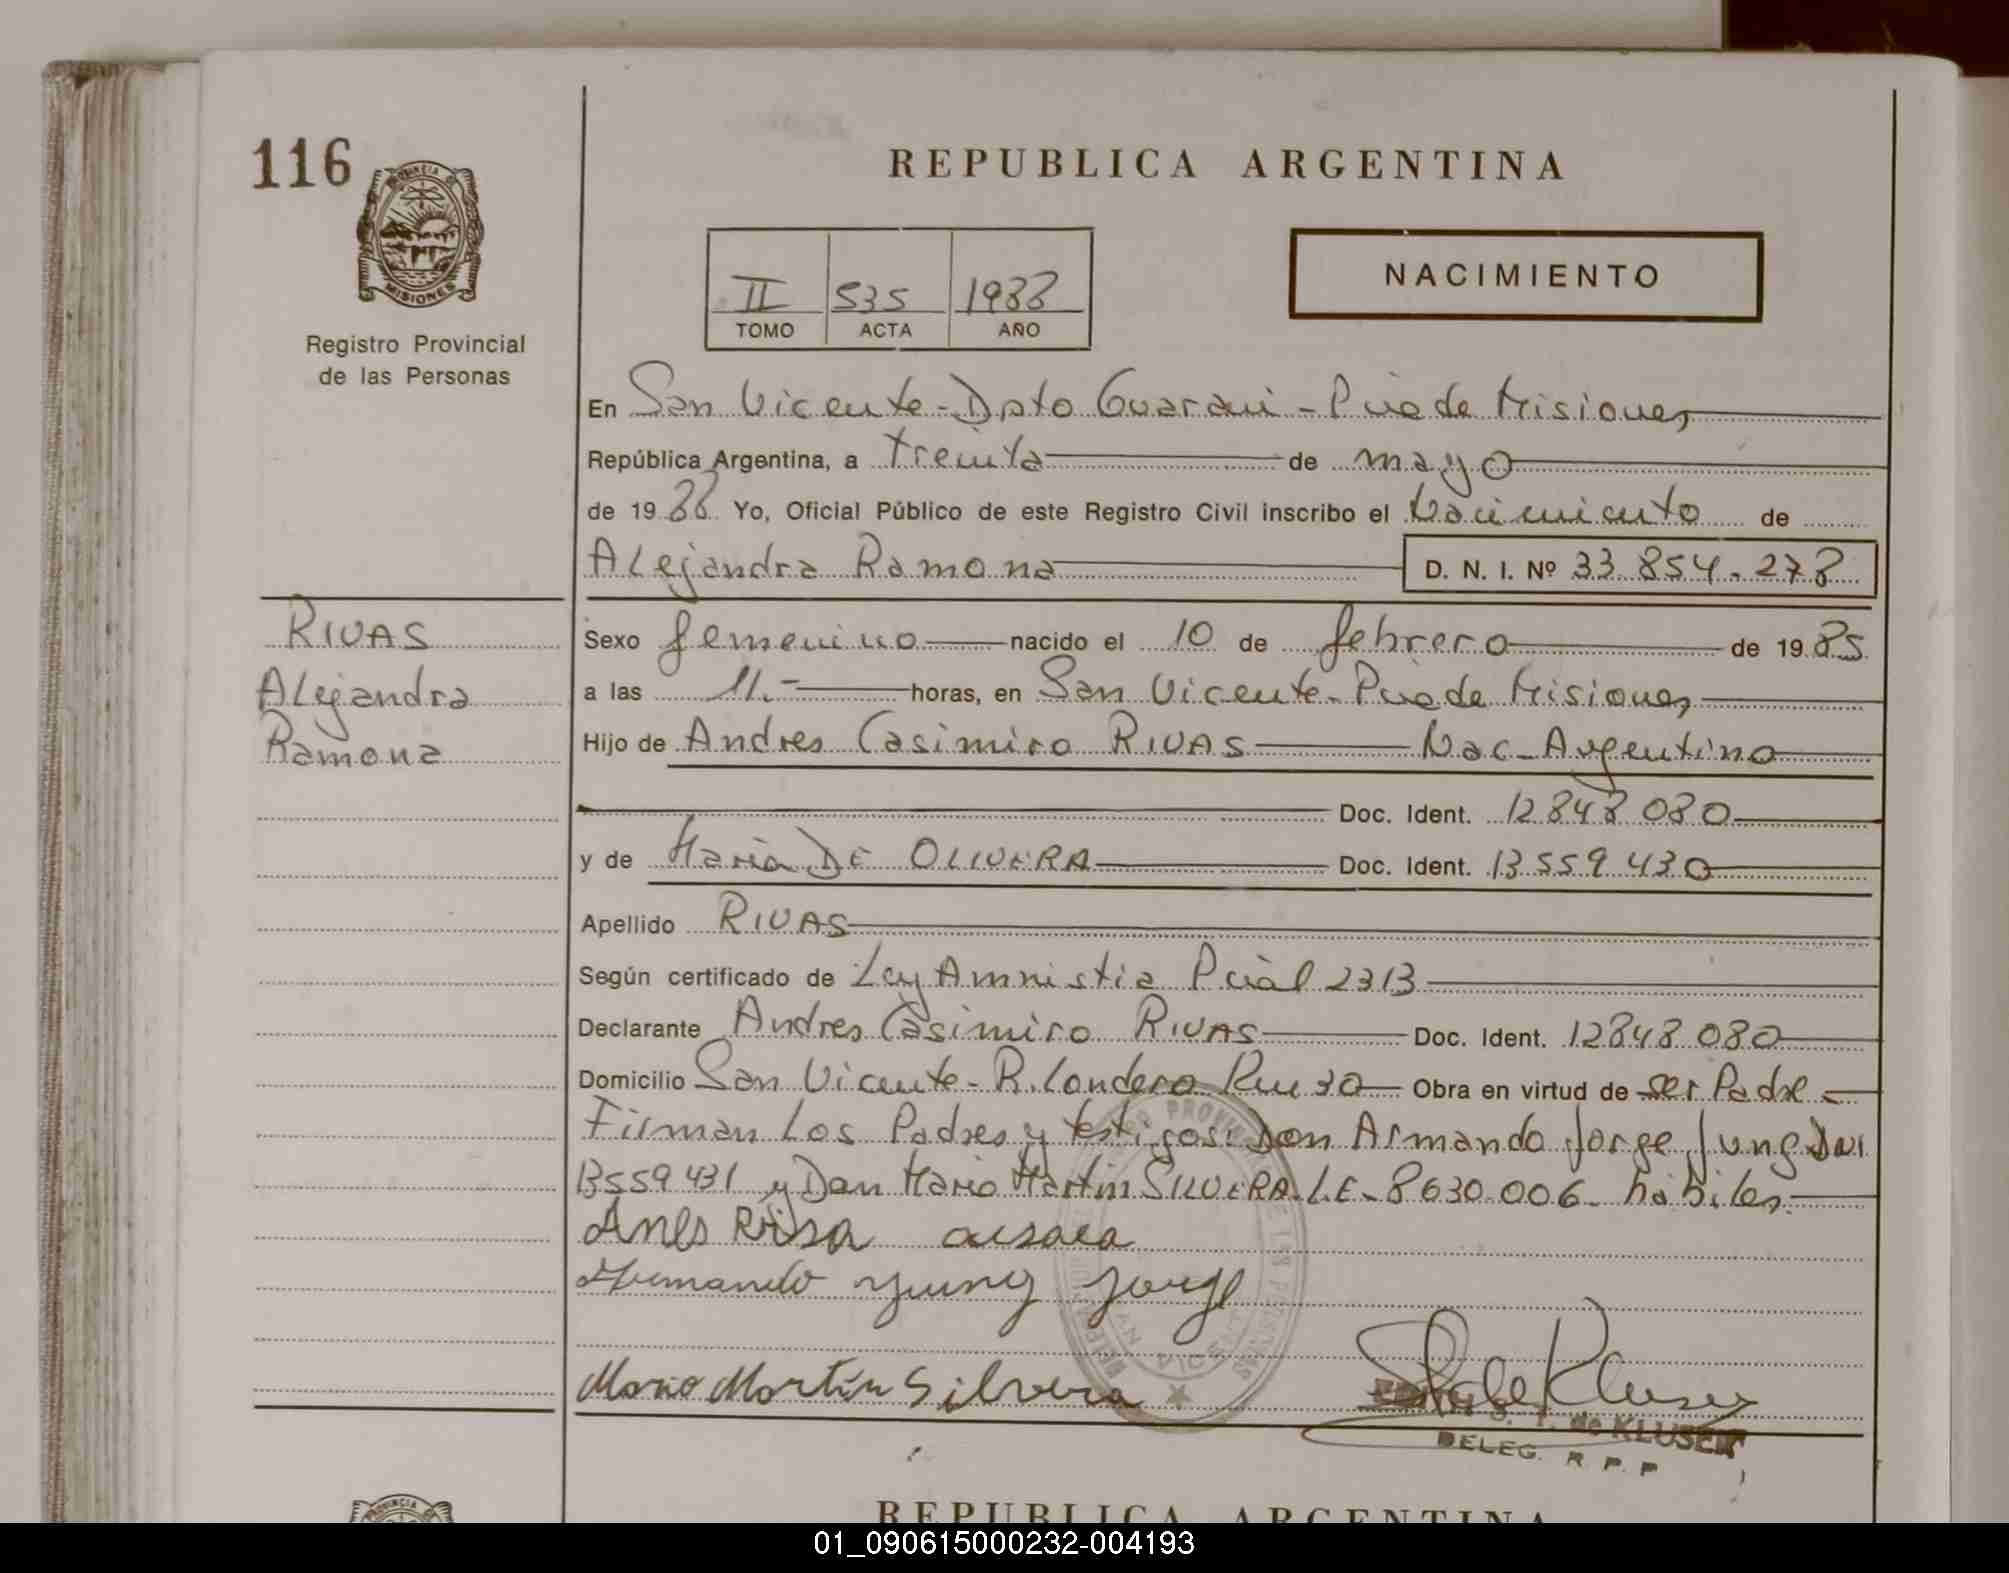 116
PROVINCIA
MISIONES
Registro Provincial
de las Personas
REPUBLICA ARGENTINA
II 535 1988
TOMO ACTA AÑO
NACIMIENTO
En San Vicente - Dpto Guarani - Pcia de Misiones
República Argentina, a treinta de mayo
de 1988 Yo, Oficial Público de este Registro Civil inscribo el Nacimiento de
Alejandra Ramona D. N. I. Nº 33.854.278
RIVAS
Alejandra
Ramona
Sexo femenino nacido el 10 de febrero de 1985
a las 11.- horas, en San Vicente - Pcia de Misiones
Hijo de Andres Casimiro RIVAS Nac - Argentino
Doc. Ident. 12848080
y de Maria DE OLIVERA Doc. Ident. 13559430
Apellido RIVAS
Según certificado de Ley Amnistia Pcial 2313
Declarante Andres Casimiro RIVAS Doc. Ident. 12848080
Domicilio San Vicente - B. Londero Obra en virtud de ser Padre -
Firman Los Padres y testigos: Don Armando Jorge Jung DNI
13559431 y Don Mario Martin SILVERA L.E - 8630.006 - hábiles
Armando yung Jorge
Mario Martín Silvera
de KLUSER
DELEG. R. P. P
REPUBLICA ARGENTINA
01_090615000232-004193